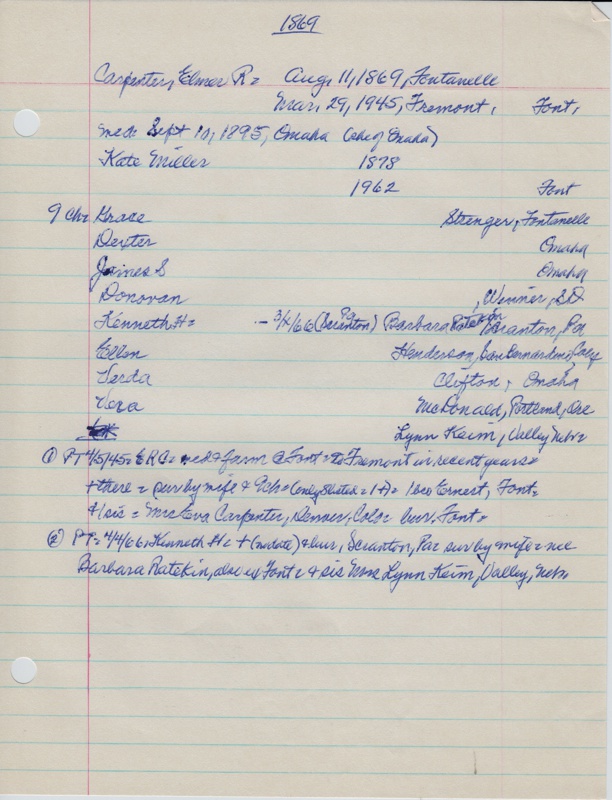 1869
Carpenter, Elmer R= Aug, 11, 1869, Fontanelle
Mar, 29, 1945, Fremont, Font,
med: Sept 10, 1895, Omaha (she of Omaha)
Kate Miller 1878
1962 Font
9 Ch= Grace Stenger, Fontanelle
Dexter Omaha
James S Omaha
Donovan , Winner, SD
Kenneth H= - 3/2/66 (Scranton) Pa Barbara Ratekin Scranton, Pa
Ellen Henderson, San Bernardino, Calif
Verda Clifton, Omaha
Vera McDonald, Portland, Ore
Lynn Keim, Valley Nebr=
(1) PT 4/5/45= ERC= & farm @ Font= to Fremont in recent years=
+ there = sur by wife & 9ch= (only 8 listed = 1+)= 1 bro Ernest, Font=
& 1 sis = Mrs Eva Carpenter, Denver, Color bur. Font=
(2) PT= 4/4/66, Kenneth H= + (no date) & bur, Scranton, Pa= sur by wife = nee
Barbara Ratekin, also of Font= & sis Mrs Lynn Keim, Valley, Nebr,